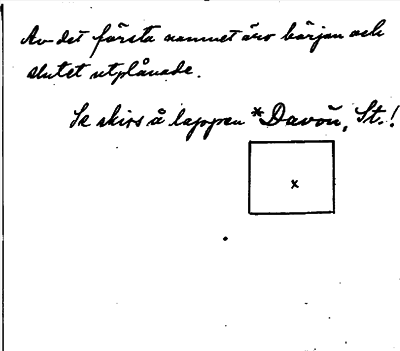 Av det första namnet äro början och
slutet utplånade.
Se skiss å lappen *Davon, St.!
x